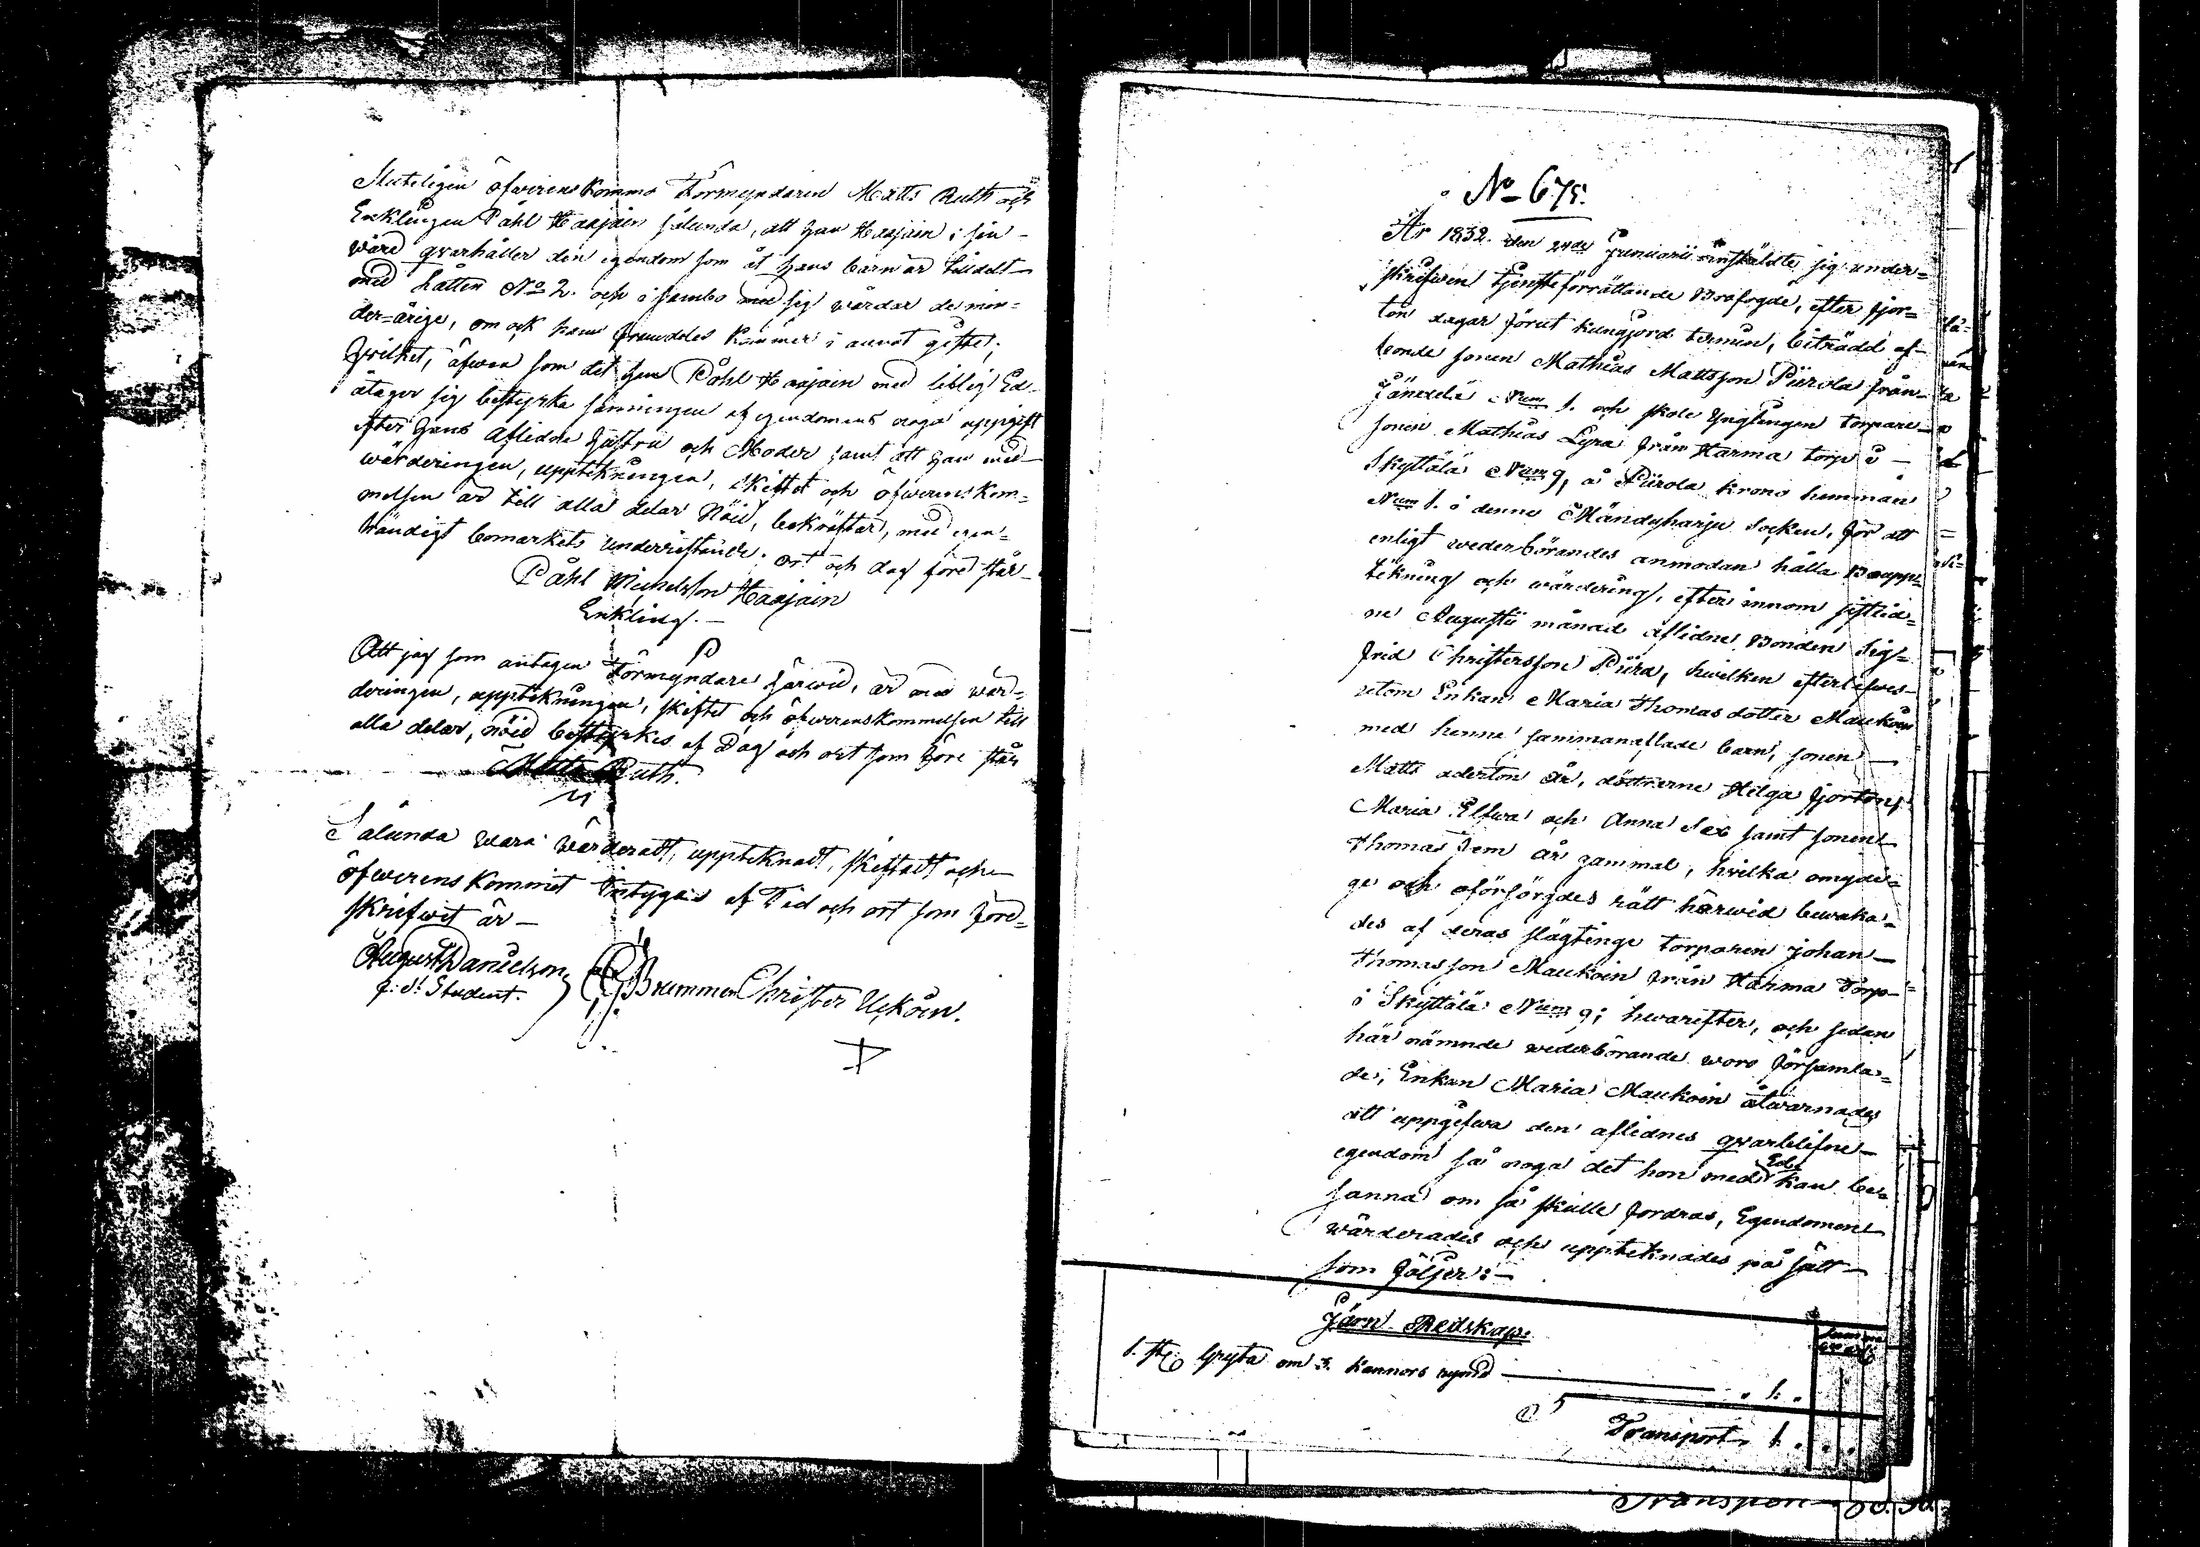 Sluteligen öfwerenskommo Förmyndaren Matts Ruth och
Enklingen Påhl Haajain sålunda, att han Haajain i sin
wård qvarhåller den egendom som åt hans barn är tilldelt
med Lotten No 2. och i sambo med sig wårdar de min-
der-årige, om ock han framdeles kommer i annat gifte;
hvilket, äfwen som det han Påhl Haajain med liflig Ed
åtager sig bestyrka sanningen af egendomens noga uppgift
efter hans aflidna hustru och Moder samt att han med
wärderingen, uppteckningen, skiftet och öfwerenskom-
melsen är till alla delar nöid, bekräftar, med egen-
händigt bomärkets underristande; ort och dag före står
Påhl Michelsson Haajain
Enkling.
Att jag som antagen Förmyndare härwid, är med wär-
deringen, uppteckningen, skiftet och öfwerenskommelsen till
alla delar, nöid bestyrkes af Dag och ort som före står
Matts Ruth.
Sålunda wara wärderadt, uppteknadt, skiftadt och
öfwerenskommet intygas af Tid och ort som före-
skrifwit är
August Danielson
f. d. Student.
Brummer
Christer Ukkoin.
No 675.
År 1832. den 24de Januarii instälde sig under-
skrifwen tjensteförrättande Brofogde, efter fjor-
ton dagar förut kungjord termin, biträdd af
bonde sonen Mathias Mattsson Piirola från
Num 1. och skole Ynglingen torpare
sonen Mathias Lyra från Harma torp i
Skyttälä Num 9, å Piirola krono hemman
Num 1. i denne Mändyharju Socken, för att
enligt wederbörandes anmodan hålla Boupp-
tekning och wärdering, efter innom sistlid-
ne Augustii månad aflidne Bonden Sig-
frid Christersson Piira, hwilken efterlefwes
utom Enkan Maria Thomas dotter Maukoin
med henne sammanaflade barn, sonen
Matts aderton år, döttrarne Helga fjorton,
Maria Elfwa och Anna Sex samt sonen
Thomas Fem år gammal, hvilka omyndi-
ge och oförsörgdes rätt härwid bewaka-
des af deras slägtinge torparen Johan
Thomasson Maukoin från Harma Torp
i Skyttälä Num 9; hwarefter, och sedan
här nämnde wederbörande woro församla-
de, Enkan Maria Maukoin åtwarnades
att uppgifwa den aflidnes qvarblifne
egendom så noga det hon med Ed kan be-
sanna om så skulle fordras, Egendomen
wärderades och uppteknades på sätt
som följer:
Järn Redskap
1. st. Gryta om 3. kannors rymd 1.
Transport 1.
Transport